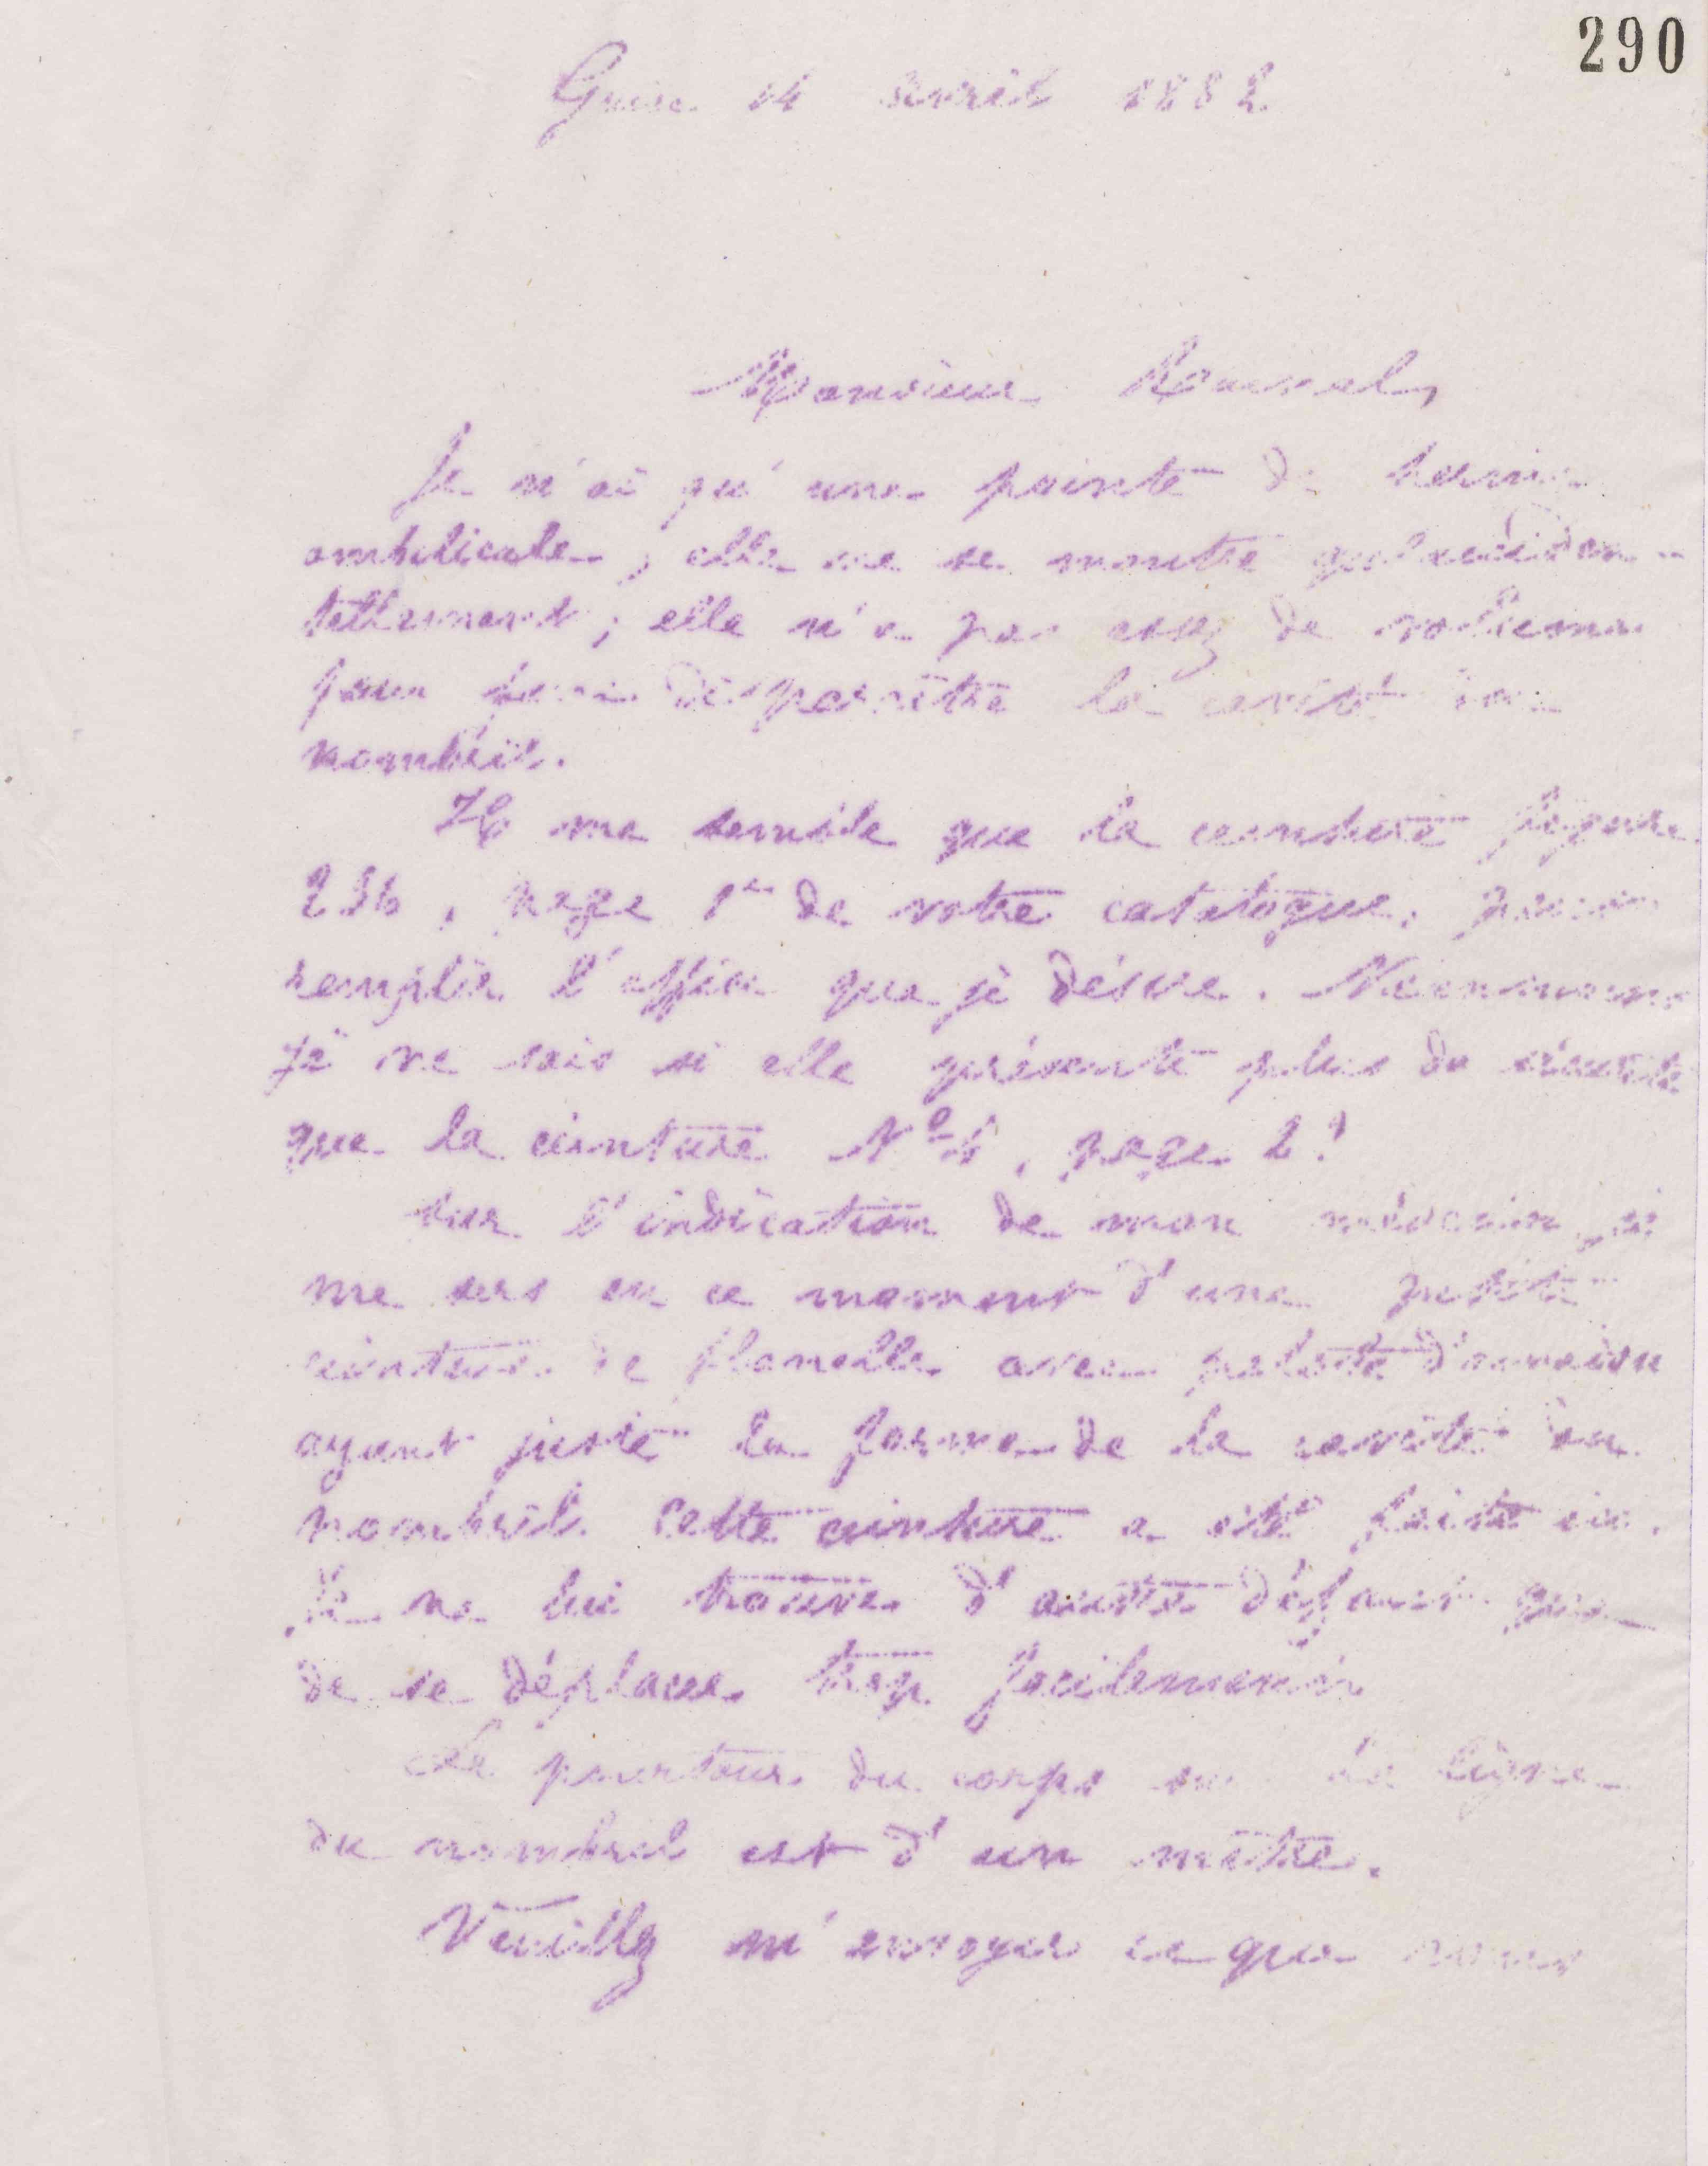 290
Guise 14 avril 1882
Monsieur Rainal,
Je n'ai qu'une pointe de hernie
ombilicale, elle ne se montre qu'acciden-
tellement ; elle n'a pas assez de volume
pour faire disparaître la cavité du
nombril.
Il me semble que la ceinture figure
236, page 1re de votre catalogue,
remplir l'office que je désire. Néanmoins
je ne sais si elle présente plus de sécurité
que la ceinture No 6, page 2 ?
Sur l'indication de mon médecin, je
me sers en ce moment d'une petite
ceinture de flanelle avec pelote d'amadou
ayant juste la forme de la cavité du
nombril. Cette ceinture a été faite ici.
Je ne lui trouve d'autre défaut que
de se déplacer trop facilement.
Le pourtour du corps sur la ligne
du nombril est d'un mètre.
Veuillez m'envoyer ce que vous